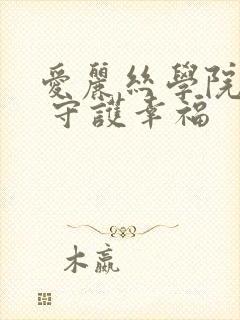 愛麗絲學院
守護幸福
木嬴